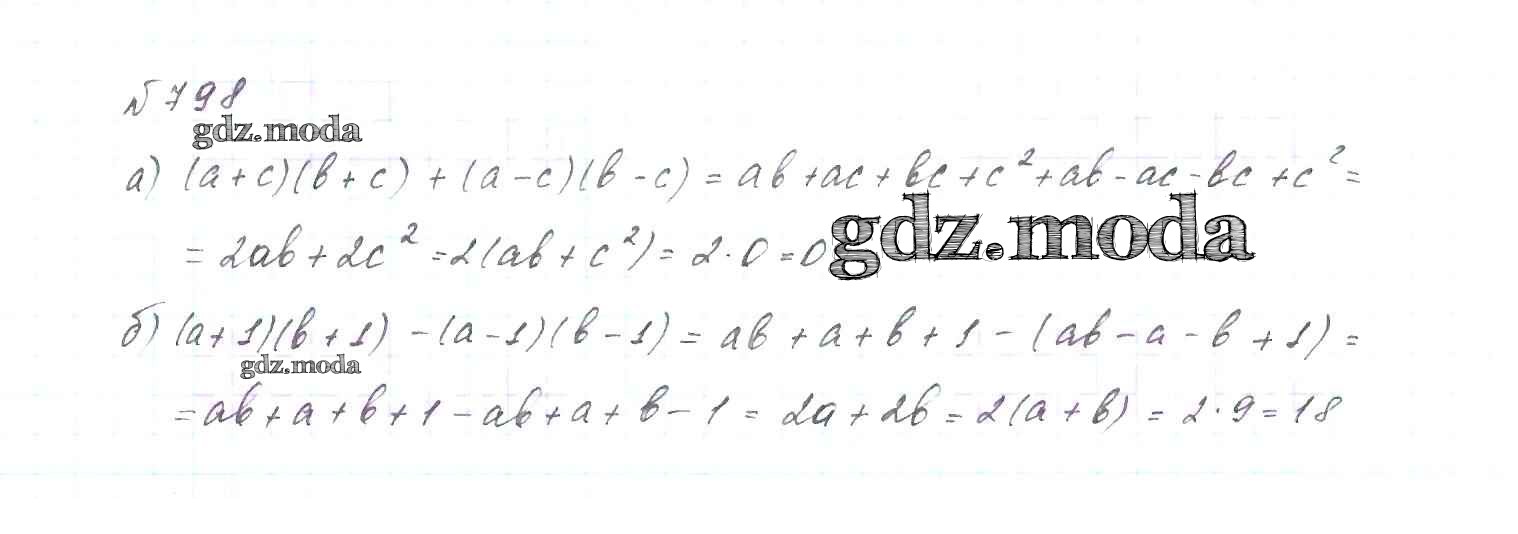 № 798
gdz.moda
а) (a + c)(b + c) + (a - c)(b - c) = ab + ac + bc + c² + ab - ac - bc + c² =
= 2ab + 2c² = 2(ab + c²) = 2 · 0 = 0
gdz.moda
б) (a + 1)(b + 1) - (a - 1)(b - 1) = ab + a + b + 1 - (ab - a - b + 1) =
gdz.moda
= ab + a + b + 1 - ab + a + b - 1 = 2a + 2b = 2(a + b) = 2 · 9 = 18